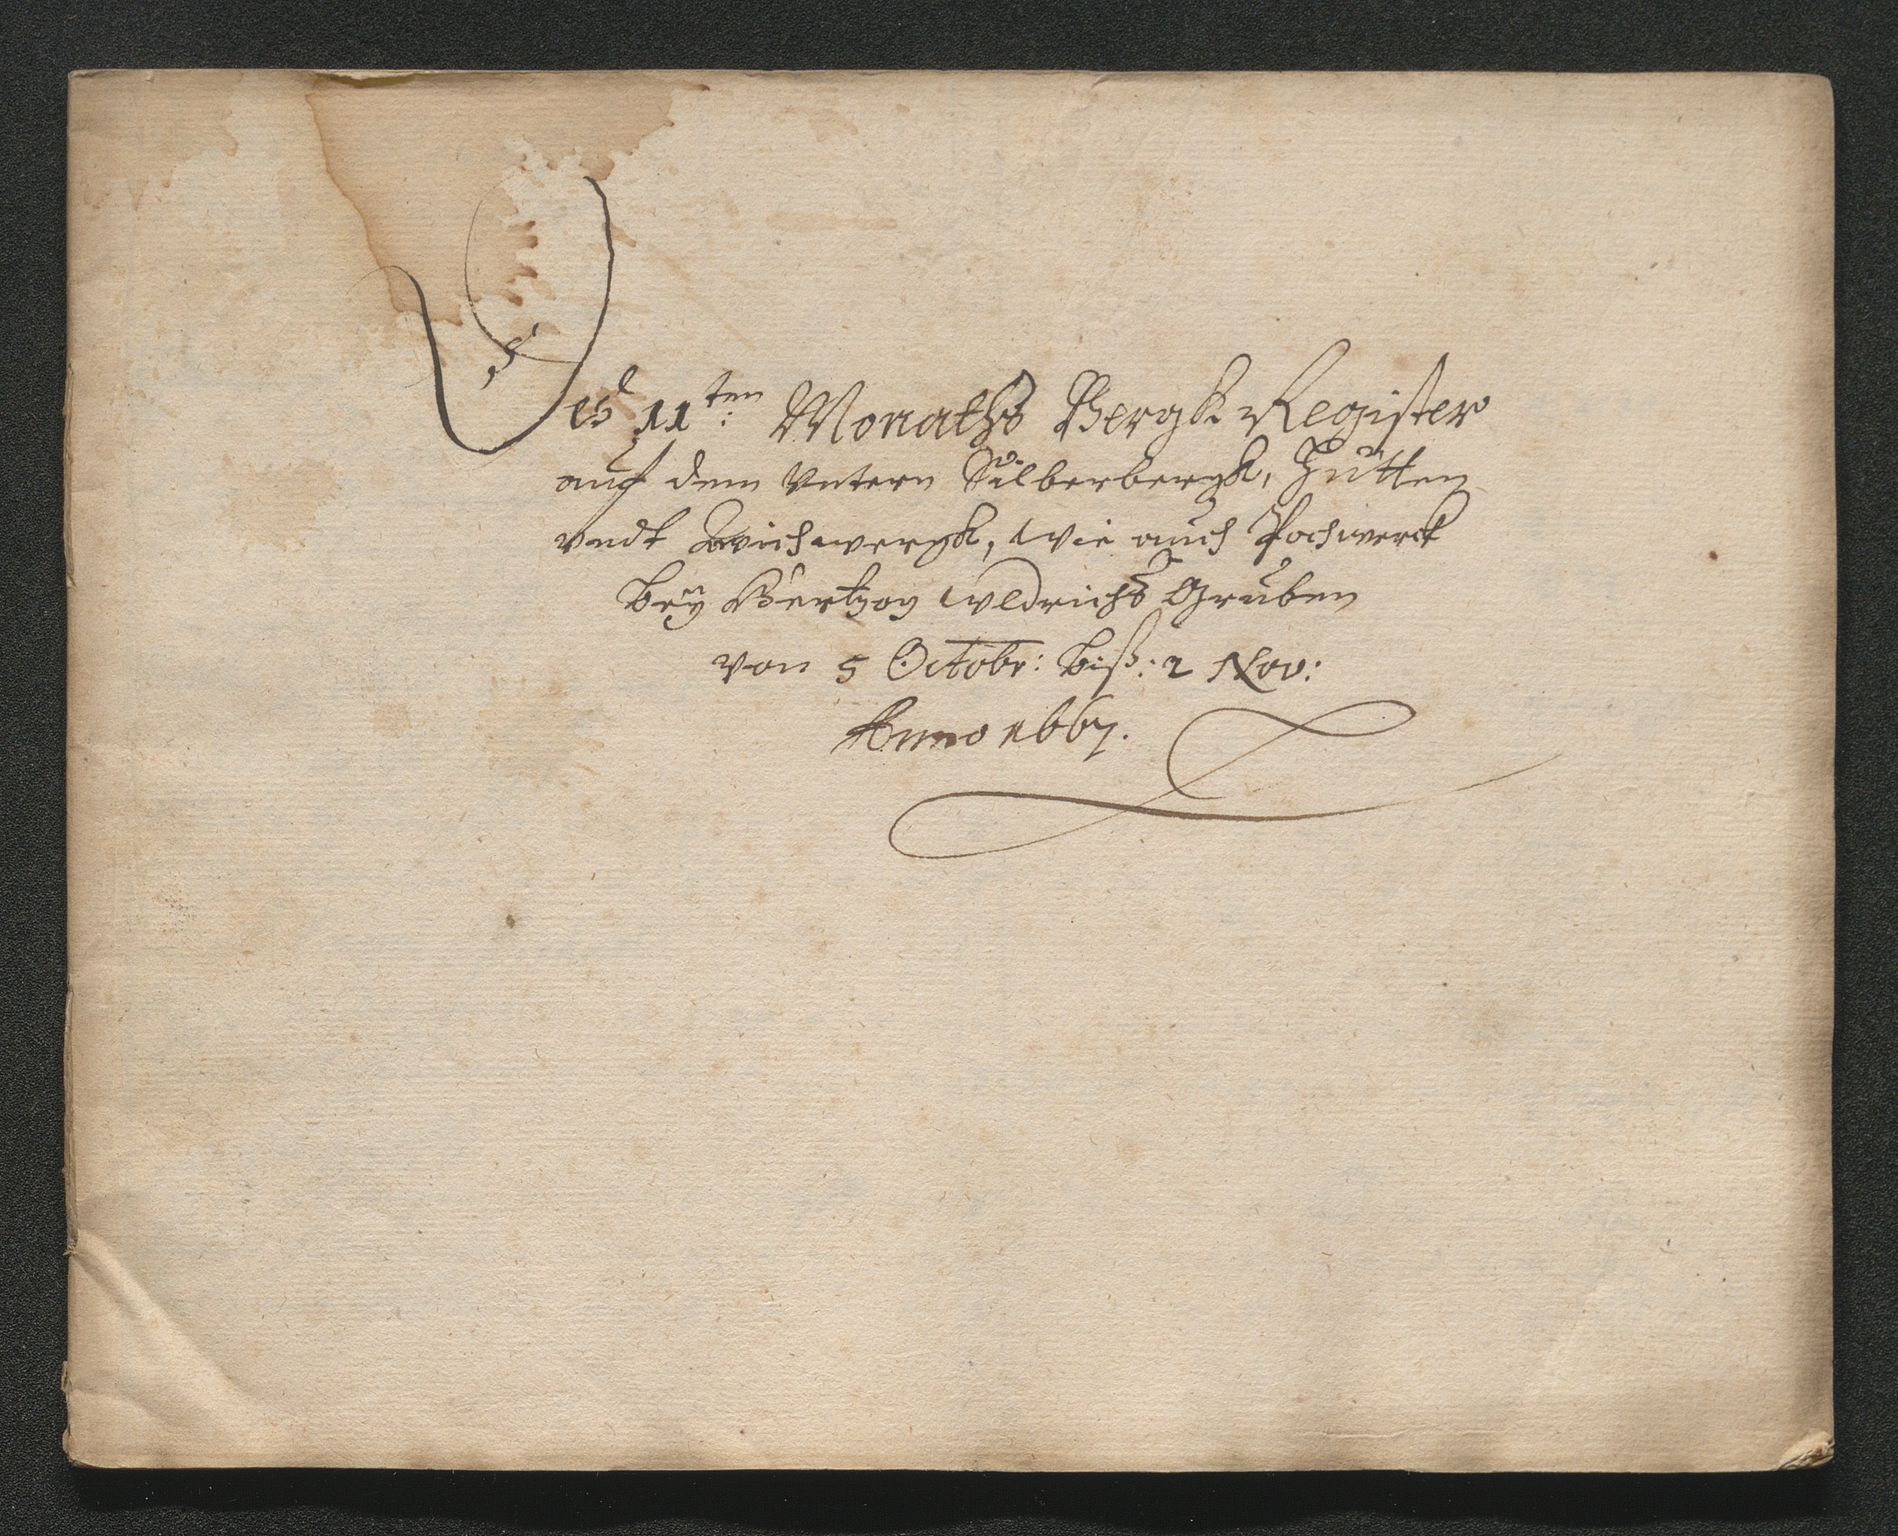 Des 11ten: Monaths Bergk Register
auf dem Vntern Silberbergk, Hütten
vndt Zwischwergk, wie auch Pochwerck
beÿ Hertzog Vldrichs Gruben
von 5 Octobr: biß: 2 Nov:
Anno 1667.